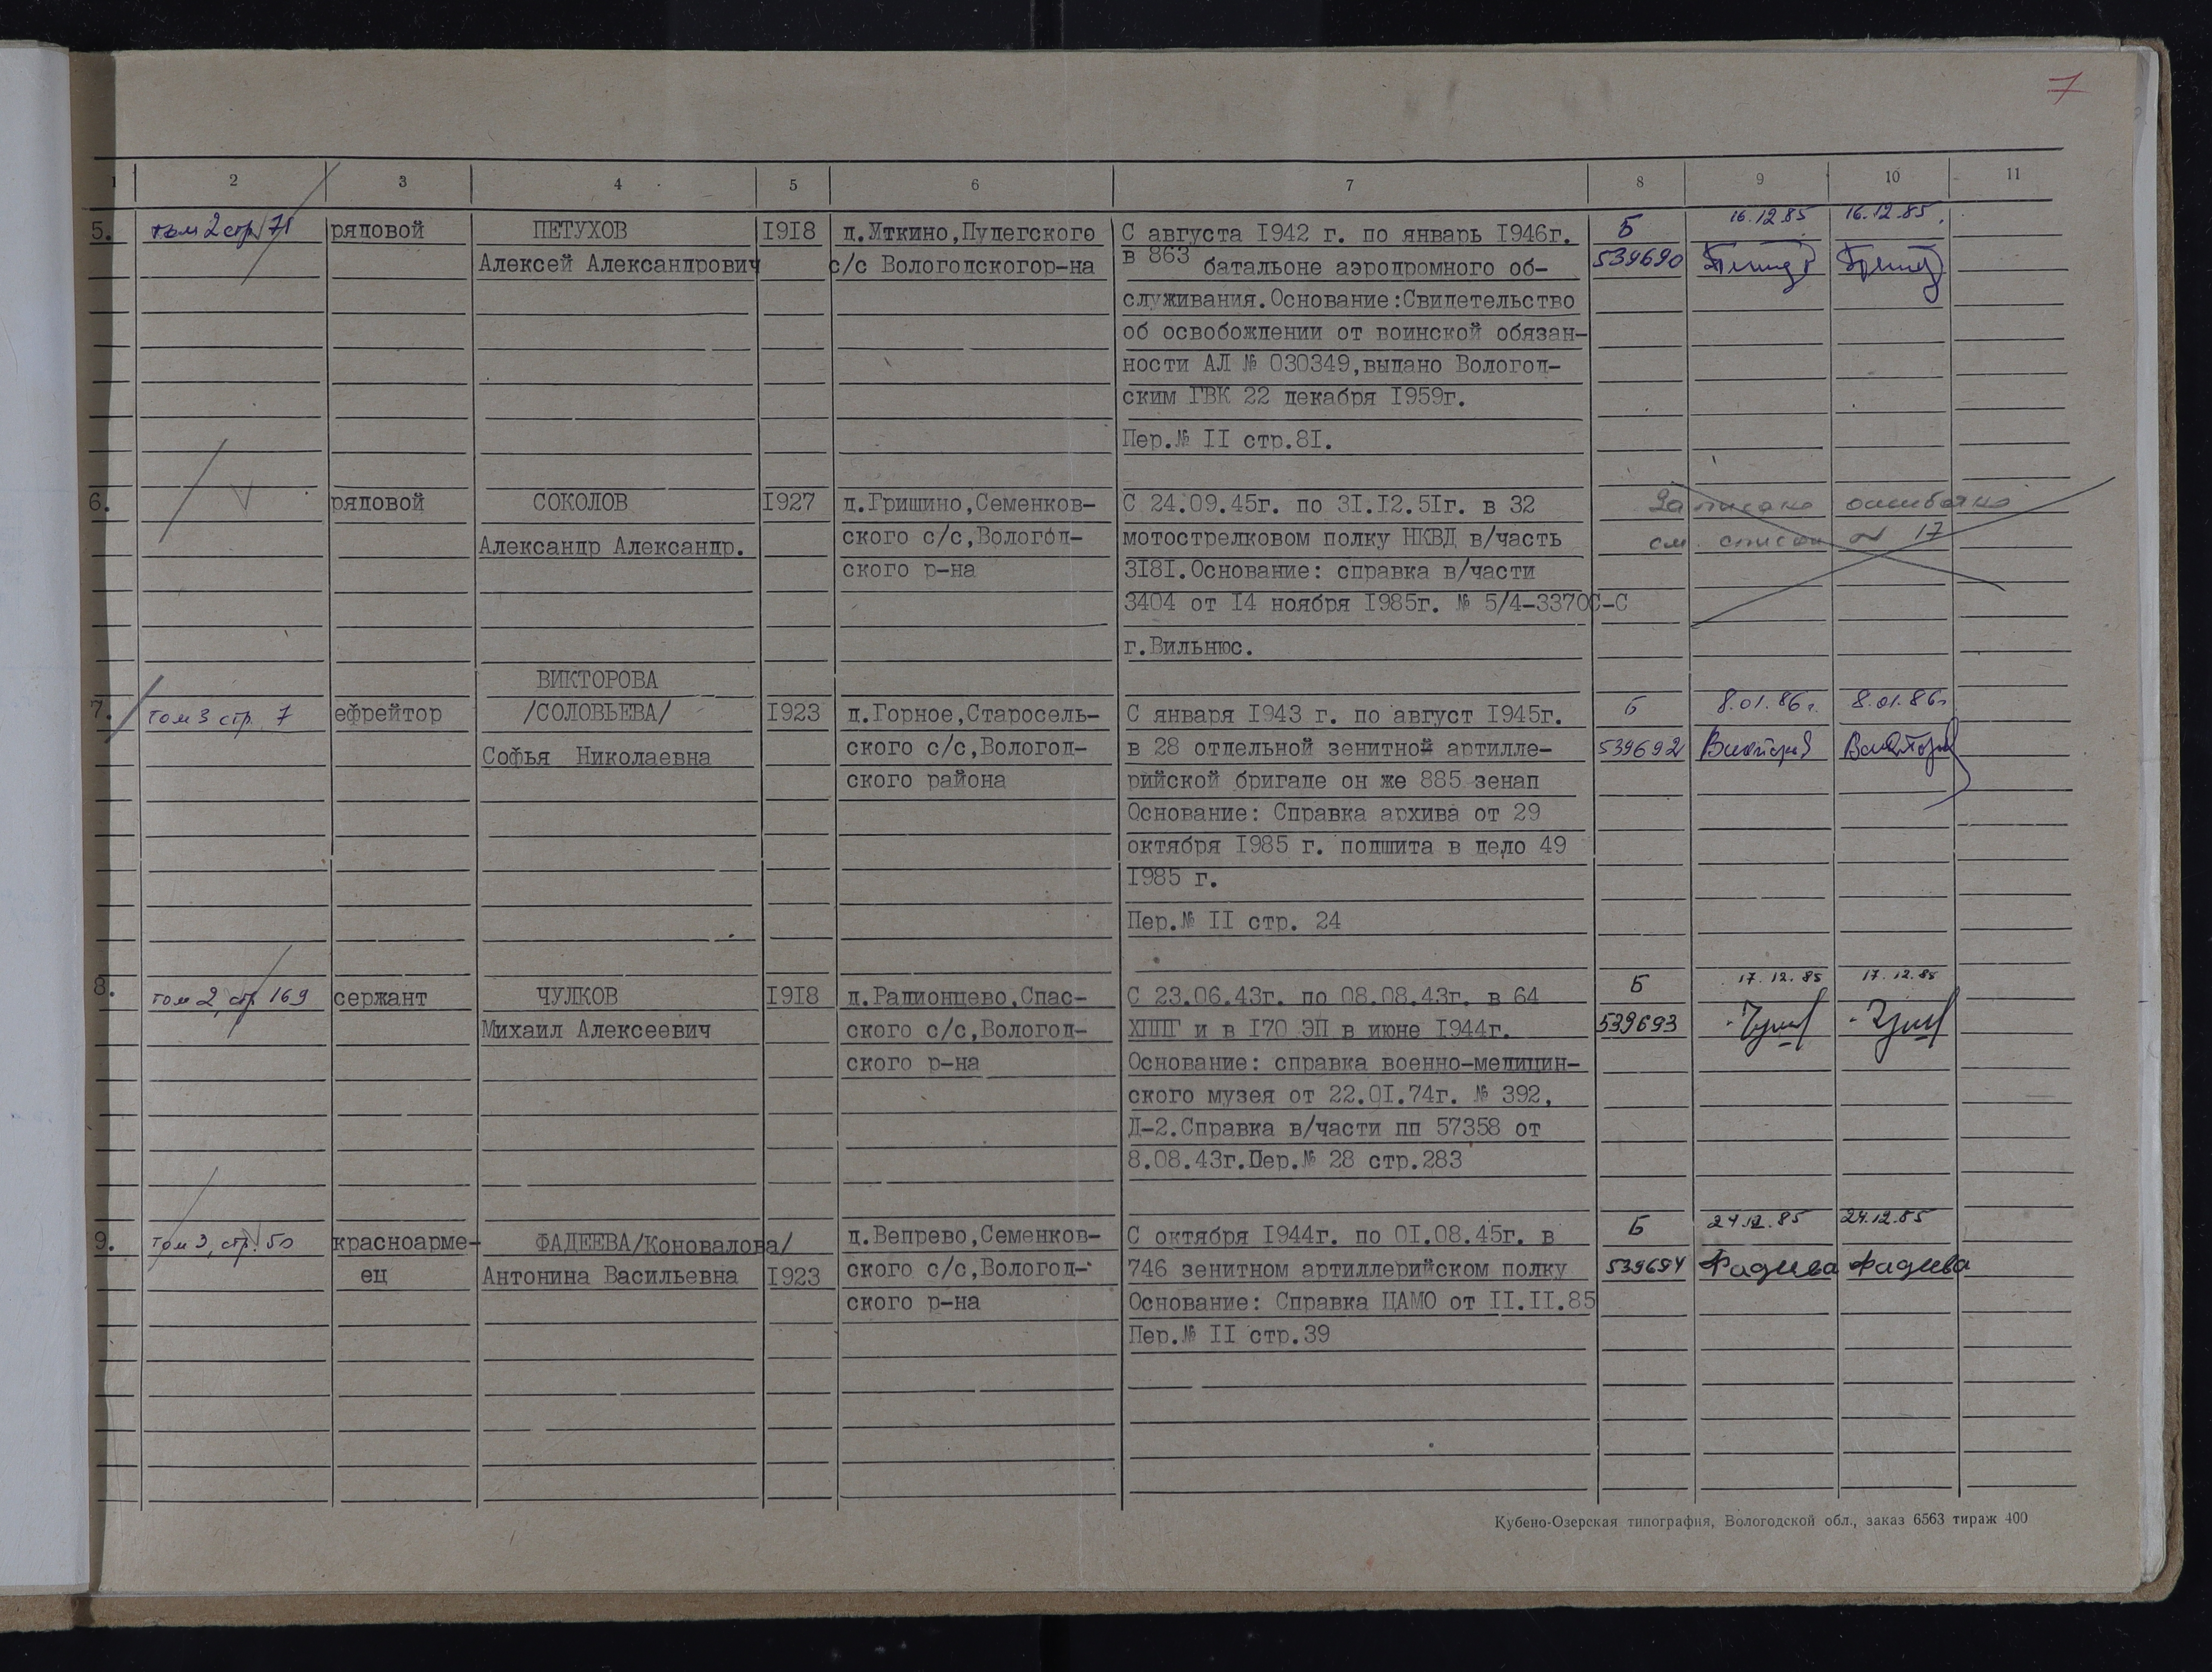 7
1 2 3 4 5 6 7 8 9 10 11
5. том 2 стр 71 рядовой ПЕТУХОВ 1918 д.Уткино,Пудегского С августа 1942 г. по январь 1946г. Б 16.12.85 16.12.85.
Алексей Александрович с/с Вологодскогор-на в 863 батальоне аэродромного об- 539690
служивания.Основание:Свидетельство
об освобождении от воинской обязан-
ности АЛ № 030349,выдано Вологод-
ским ГВК 22 декабря 1959г.
Пер.№ II стр.81.
6. рядовой СОКОЛОВ 1927 д.Гришино,Семенков- С 24.09.45г. по 31.12.51г. в 32 Записано ошибочно
Александр Александр. ского с/с,Вологод- мотострелковом полку НКВД в/часть см. список № 17
ского р-на 3181.Основание: справка в/части
3404 от 14 ноября 1985г. № 5/4-3370С-С
г.Вильнюс.
ВИКТОРОВА
7. том 3 стр. 7 ефрейтор /СОЛОВЬЕВА/ 1923 д.Горное,Старосель- С января 1943 г. по август 1945г. Б 8.01.86г. 8.01.86г
Софья Николаевна ского с/с,Вологод- в 28 отдельной зенитной артилле- 539692
ского района рийской бригаде он же 885 зенап
Основание: Справка архива от 29
октября 1985 г. подшита в дело 49
1985 г.
Пер.№ II стр. 24
8. том 2, стр 169 сержант ЧУЛКОВ 1918 д.Радионцево,Спас- С 23.06.43г. по 08.08.43г. в 64 Б 17.12.85 17.12.85
Михаил Алексеевич ского с/с,Вологод- ХППГ и в 170 ЭП в июне 1944г. 539693
ского р-на Основание: справка военно-медицин-
ского музея от 22.01.74г. № 392,
Д-2.Справка в/части пп 57358 от
8.08.43г.Пер.№ 28 стр.283
9. том 3, стр. 50 красноарме- ФАДЕЕВА/Коновалова/ д.Вепрево,Семенков- С октября 1944г. по 01.08.45г. в Б 24.12.85 24.12.85
ец Антонина Васильевна 1923 ского с/с,Вологод- 746 зенитном артиллерийском полку 539694 Фадеева Фадеева
ского р-на Основание: Справка ЦАМО от II.II.85
Пер.№ II стр.39
Кубено-Озерская типография, Вологодской обл., заказ 6563 тираж 400